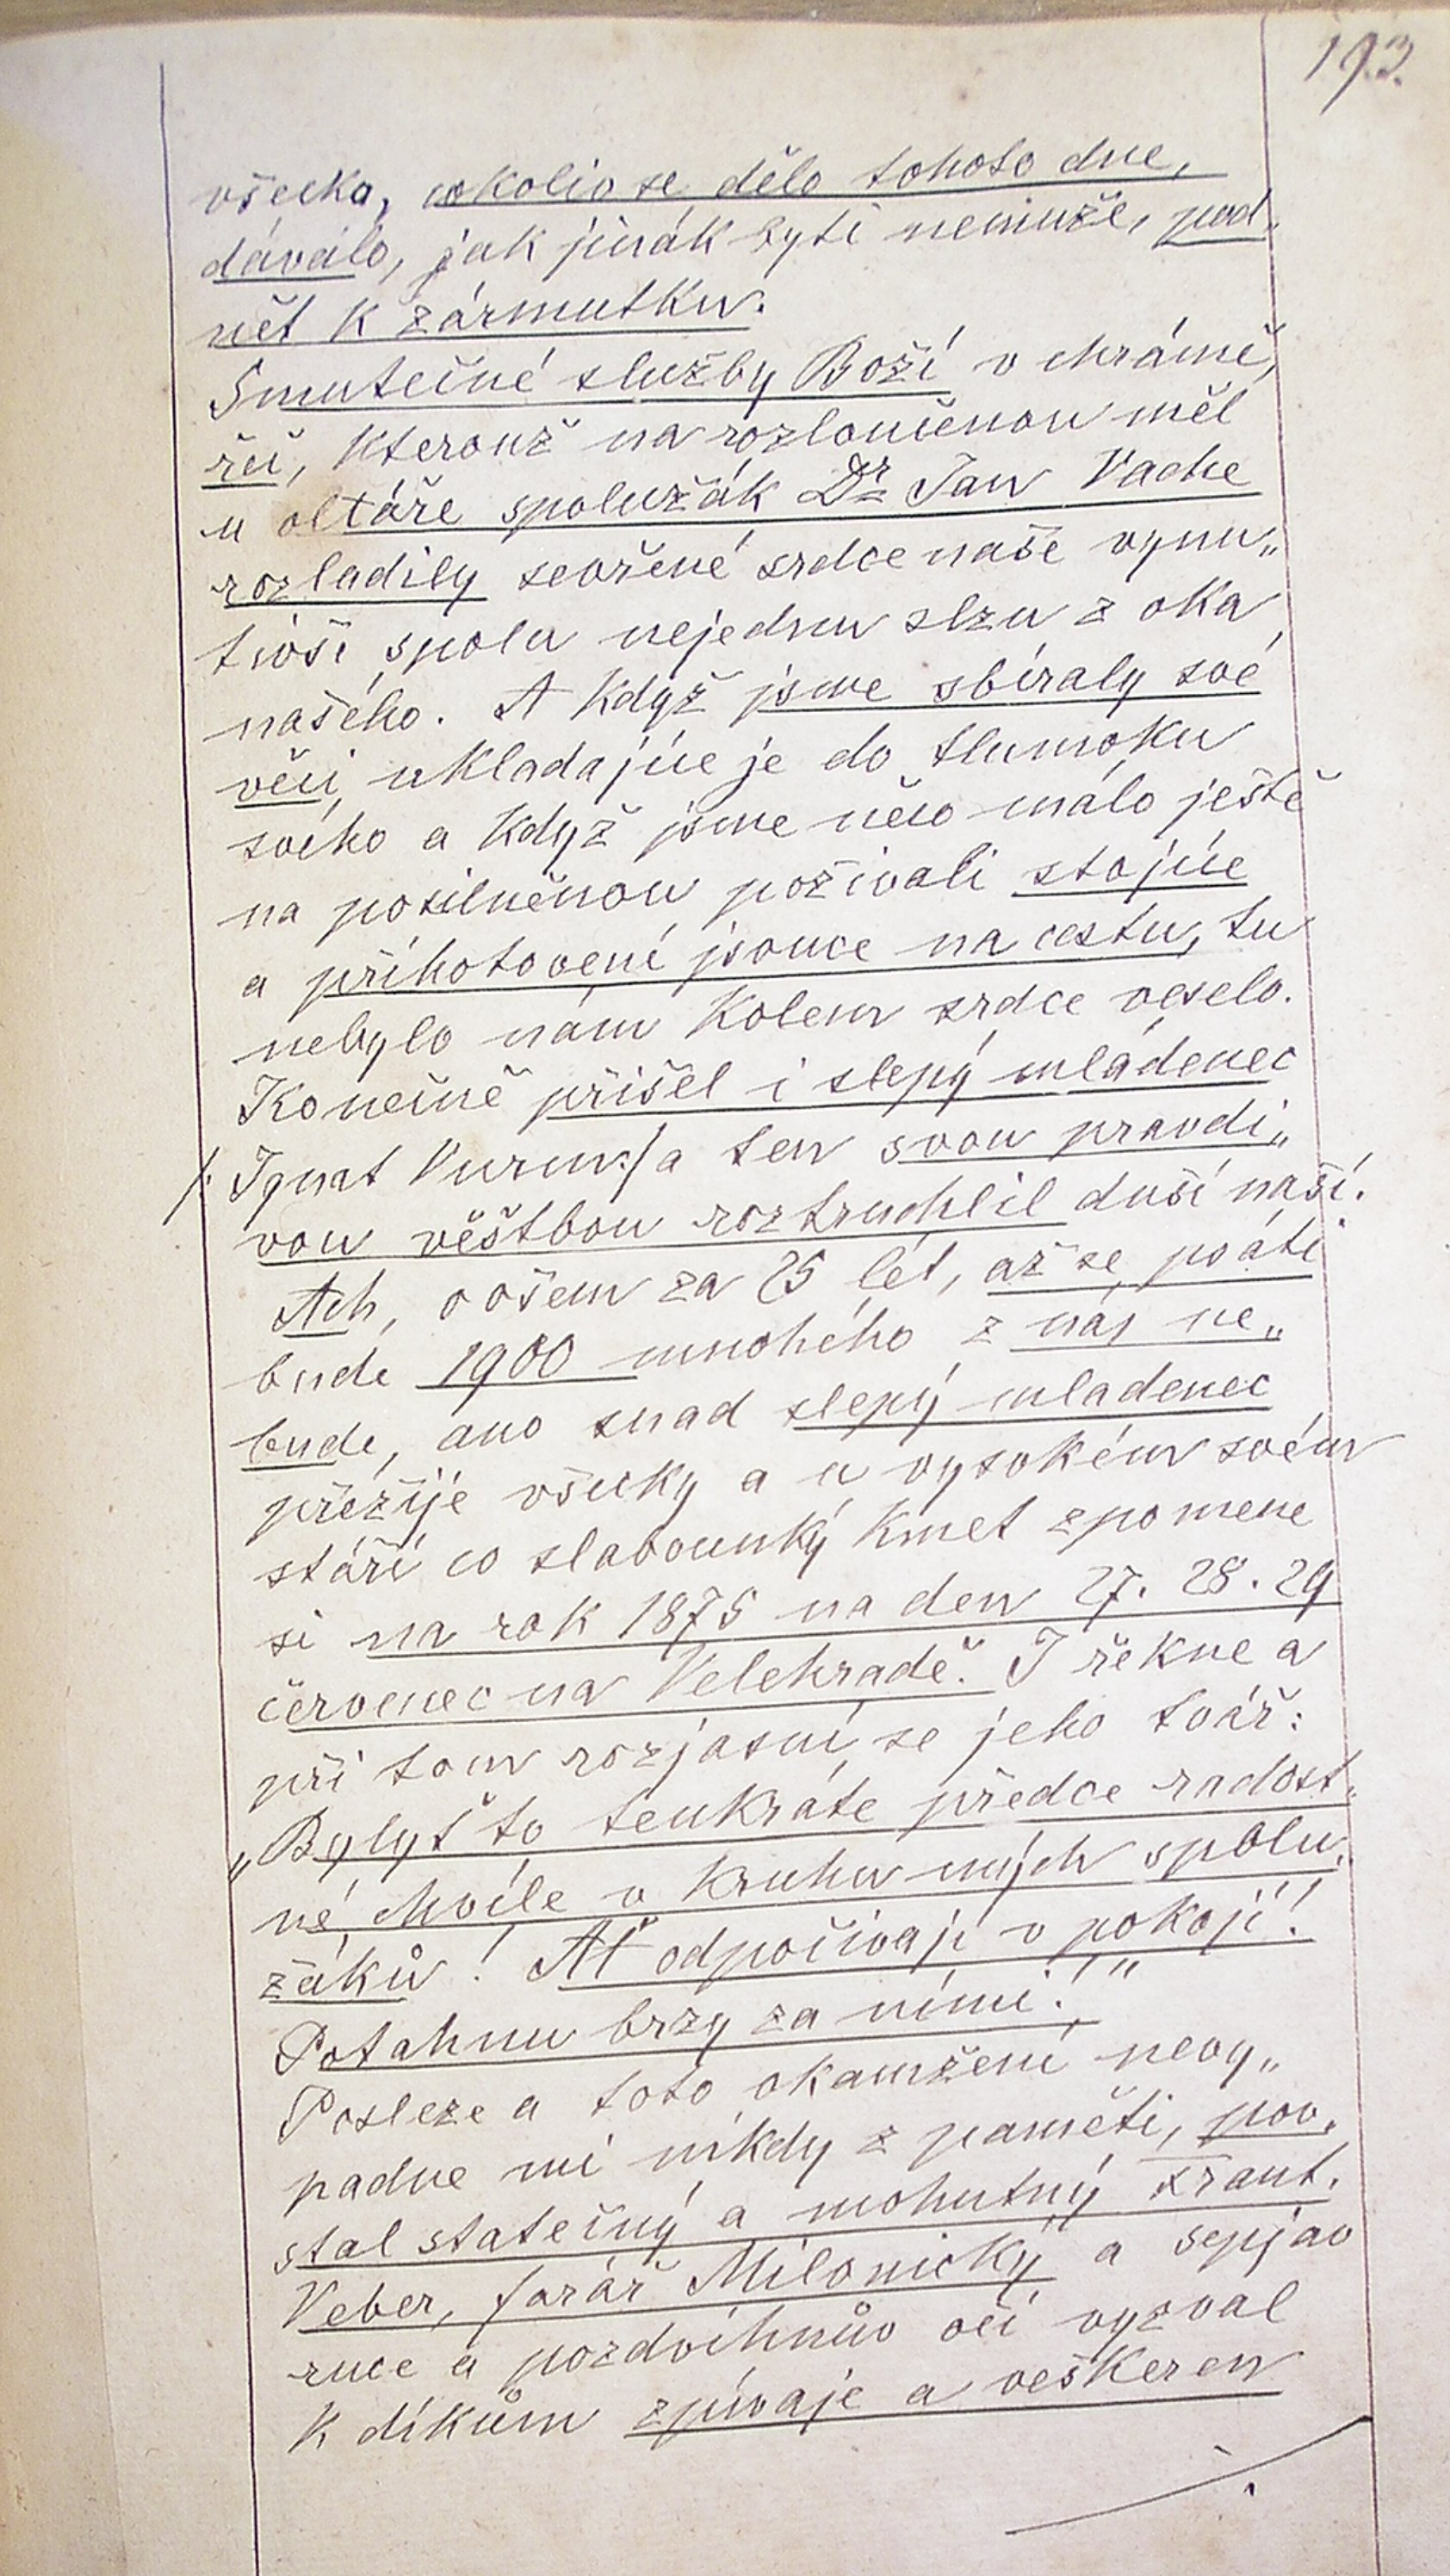 193.
všecko, cokoliv se dělo tohoto dne,
dávalo, jak jinák byti nemuže, pod„
nět k zármutku.
Smutečné služby Boží v chrámě,
řeč, kterouž na rozloučenou měl
u oltáře spolužák Dr Jan Vache
rozladily sevřené srdce naše vynu„
tivši spolu nejednu slzu z oka
našeho. A když jsme sbíraly své
věci ukladajíce je do tlumoku
svého a když jsme něco málo ještě
na posilněnou požívali stojíce
a přihotoveni jsouce na cestu, tu
nebylo nám kolem srdce veselo.
Konečně přišel i slepý mládenec
/: Ignat Wurm :/ a ten svou pravdi„
vou věštbou roztruchlil duši naší.
Ach, ovšem za 25 let, až se psáti
bude 1900 mnohého z nás ne„
bude, ano snad slepý mladenec
přežije všecky a u vysokém svém
stáří co slabounký kmet zpomene
si na rok 1875 na den 27. 28. 29
červenec na Velehradě. I řekne a
při tom rozjasní se jeho tvář:
„Bylyť to tenkráte předce radost„
né chvíle v kruhu mých spolu„
žáků! Ať odpočívají v pokoji!
Potahnu brzy za nimi!"
Posleze a toto okamžení nevy„
padne mi nikdy z paměti, pov„
stal statečný a mohutný Frant.
Veber, farář Milonický a sepjav
ruce a pozdvihnův oči vyzval
k díkům zpívaje a veškeren
./.